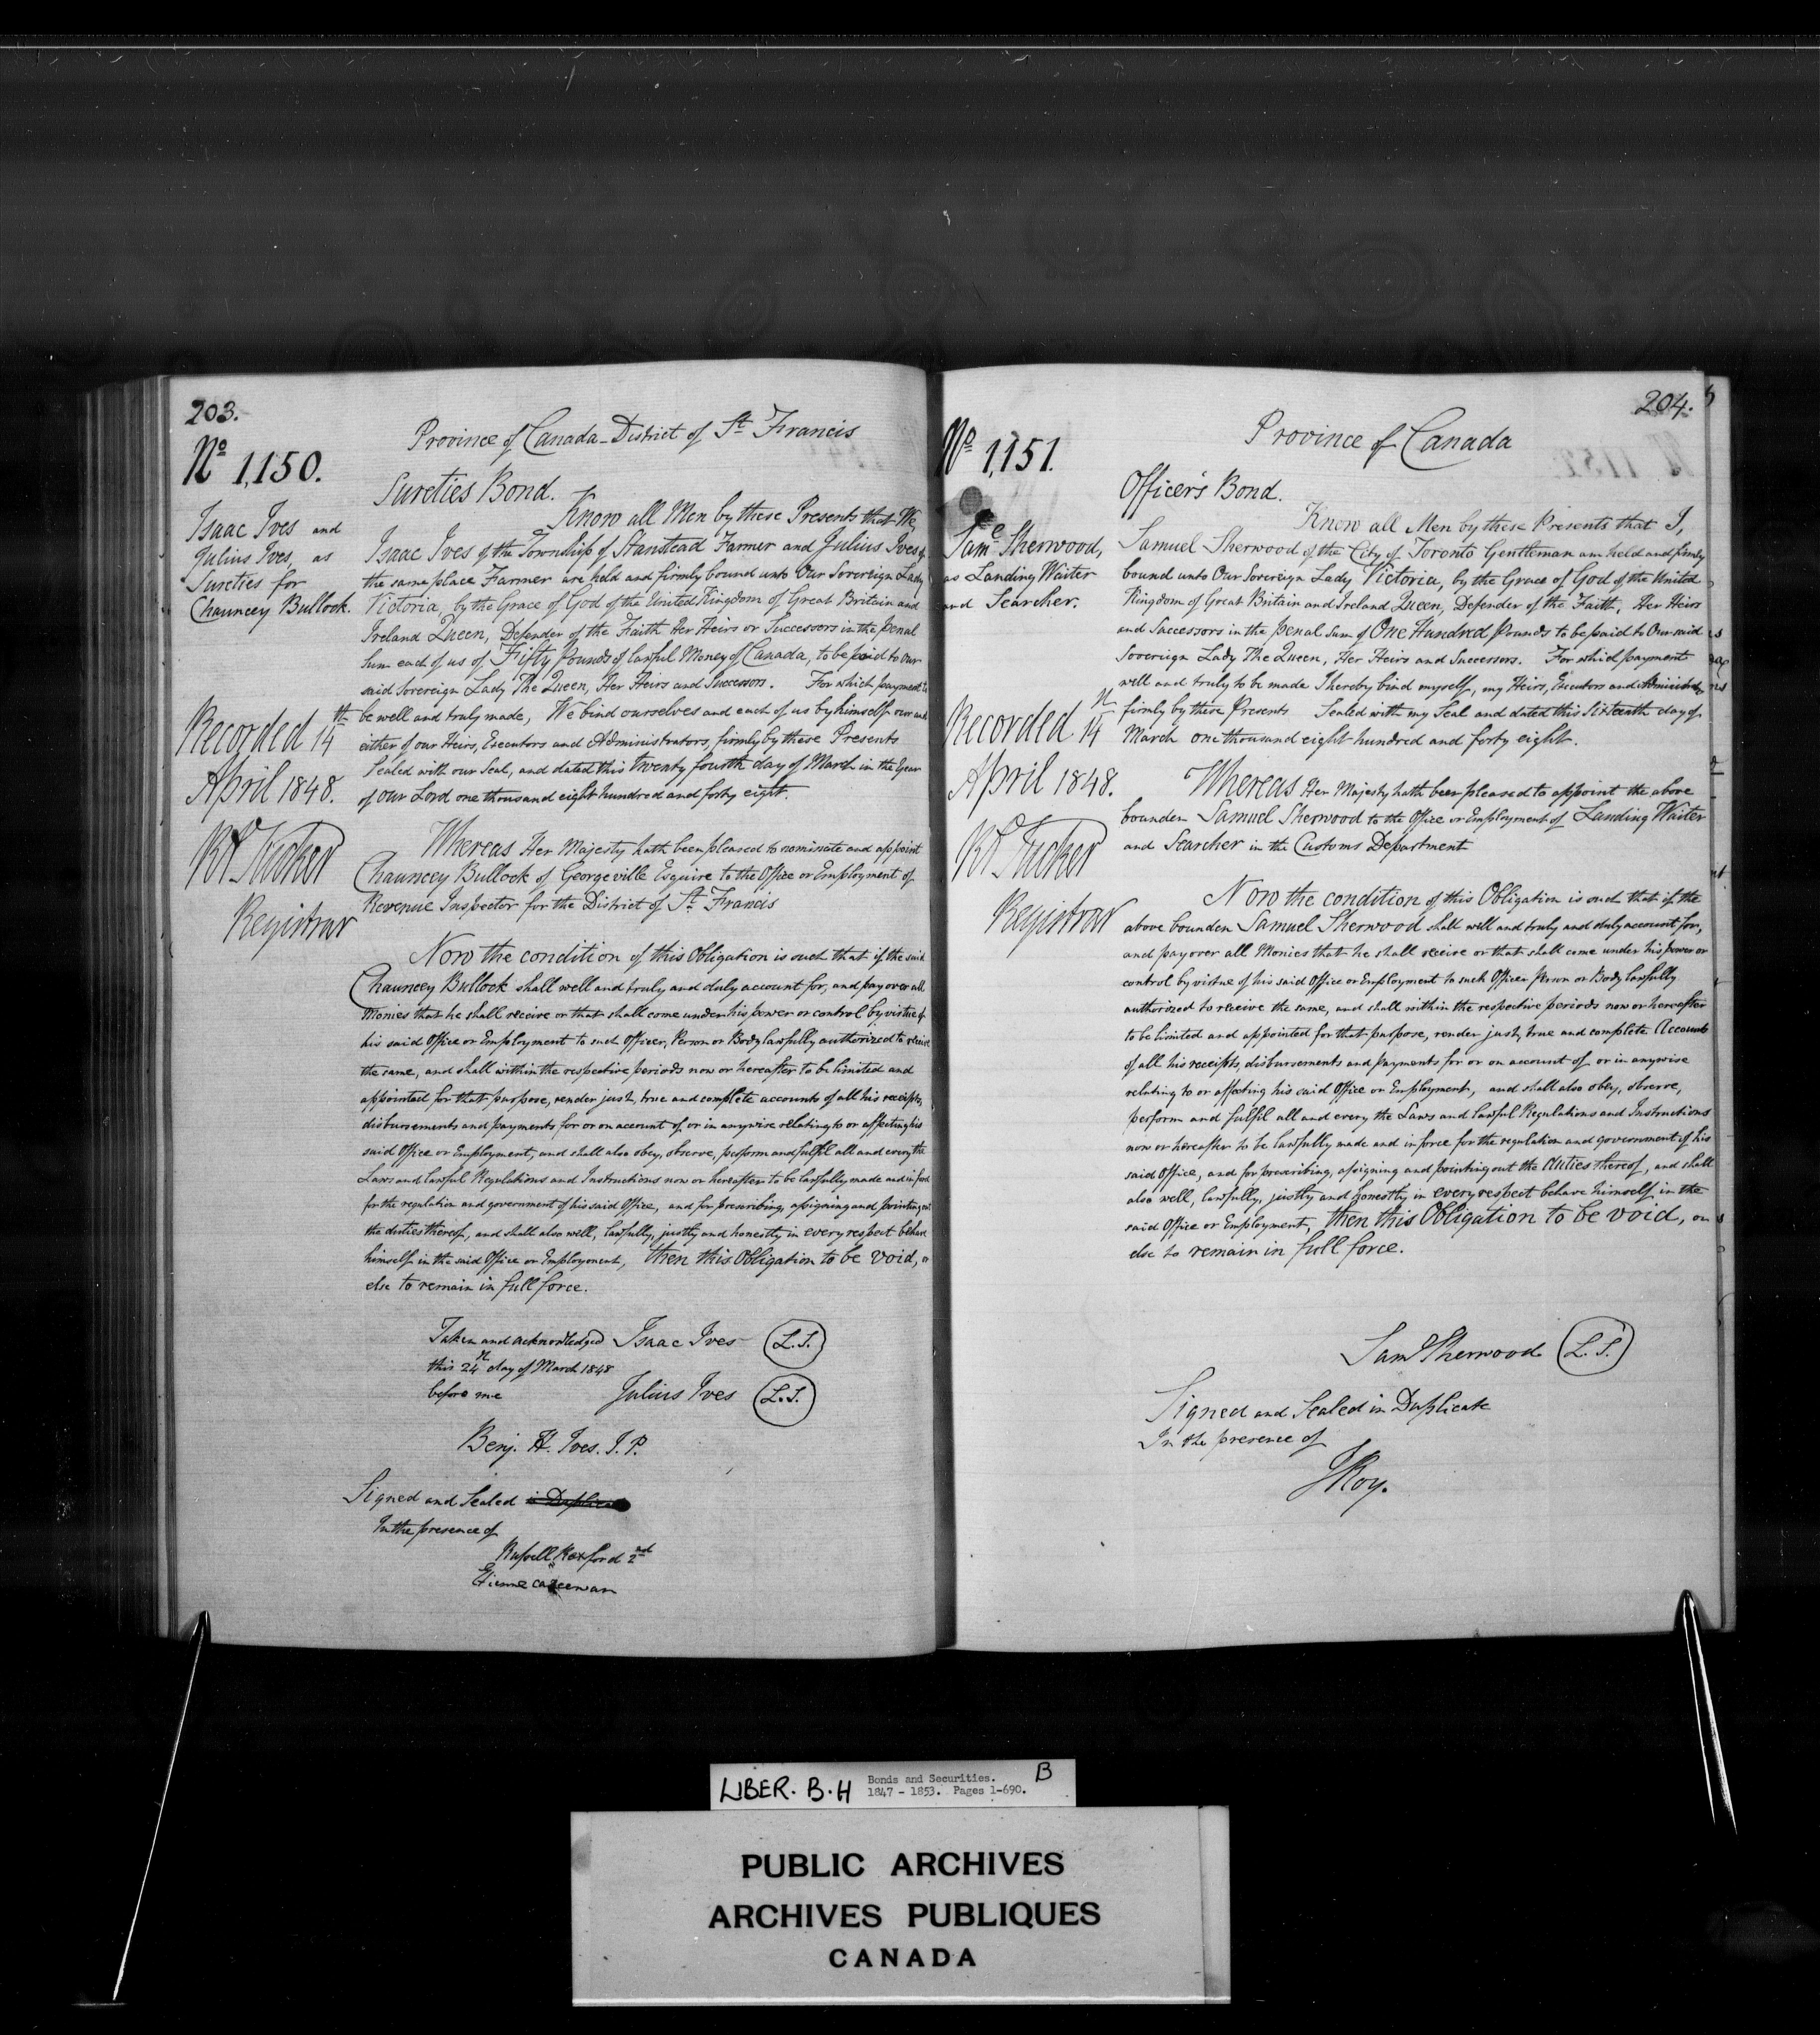 203.
Nº 1,150.
Isaac Ives and
Julius Ives, as
Sureties for
Chauncey Bullock.
Recorded 14th
April 1848.
RA Tucker
Registrar
Province of Canada - District of St. Francis
Sureties Bond.
Know all Men by these Presents that We,
Isaac Ives of the Township of Stanstead Farmer and Julius Ives of
the same place Farmer are held and firmly bound unto Our Sovereign Lady
Victoria, by the Grace of God of the United Kingdom of Great Britain and
Ireland Queen, Defender of the Faith Her Heirs or Successors in the penal
Sum each of us of Fifty Pounds of lawful Money of Canada, to be paid to our
said Sovereign Lady The Queen, Her Heirs and Successors. For which payment to
be well and truly made, We bind ourselves and each of us by himself our and
either of our Heirs, Executors and Administrators, firmly by these Presents
Sealed with our Seal, and dated this twenty fourth day of March in the Year
of Our Lord one thousand eight hundred and forty eight.
Whereas Her Majesty hath been pleased to nominate and appoint
Chauncey Bullock of Georgeville Esquire to the Office or Employment of
Revenue Inspector for the District of St. Francis
Now the condition of this Obligation is such that if the said
Chauncey Bullock shall well and truly and duly account for, and pay over all
Monies that he shall receive or that shall come under his power or control by virtue of
his said Office or Employment to such Officer, Person or Body lawfully authorized to receive
the same, and shall within the respective periods now or hereafter to be limited and
appointed for that purpose, render just, true and complete accounts of all his receipts,
disbursements and payments for or on account of, or in anywise relating to or affecting his
said Office or Employment, and shall also obey, observe, perform and fulfil all and every the
Laws and lawful Regulations and Instructions now or hereafter to be lawfully made and in force
for the regulation and government of his said Office, and for prescribing, assigning and pointing out
the duties thereof, and shall also well, lawfully, justly and honestly in every respect behave
himself in the said Office or Employment, then this Obligation to be void, or
else to remain in full force.
Taken and acknowledged Isaac Ives (L.S.)
this 24th day of March 1848
before me Julius Ives (L.S.)
Benj. H. Ives. J.P.
Signed and Sealed in Duplicate
In the presence of
Russell Rexford 2nd
Etienne
204.
Nº 1,151.
Saml Sherwood,
as Landing Waiter
and Searcher.
Recorded 14th
April 1848.
RA Tucker
Registrar
Province of Canada
Officer's Bond.
Know all Men by these Presents that I,
Samuel Sherwood of the City of Toronto Gentleman am held and firmly
bound unto Our Sovereign Lady Victoria, by the Grace of God of the United
Kingdom of Great Britain and Ireland Queen, Defender of the Faith, Her Heirs
and Successors in the penal Sum of One Hundred Pounds to be paid to Our said
Sovereign Lady The Queen, Her Heirs and Successors. For which payment
well and truly to be made I hereby bind myself, my Heirs, Executors and Administrators
firmly by these Presents Sealed with my Seal and dated this Sixteenth day of
March one thousand eight hundred and forty eight.
Whereas Her Majesty hath been pleased to appoint the above
bounden Samuel Sherwood to the Office or Employment of Landing Waiter
and Searcher in the Customs Department
Now the condition of this Obligation is such that if the
above bounden Samuel Sherwood shall well and truly and duly account for,
and pay over all Monies that he shall receive or that shall come under his power or
control by virtue of his said Office or Employment to such Officer Person or Body lawfully
authorized to receive the same, and shall within the respective periods now or hereafter
to be limited and appointed for that purpose, render just, true and complete Accounts
of all his receipts, disbursements and payments for or on account of or in anywise
relating to or affecting his said Office or Employment, and shall also obey, observe,
perform and fulfil all and every the Laws and lawful Regulations and Instructions
now or hereafter to be lawfully made and in force for the regulation and government of his
said Office, and for prescribing, assigning and pointing out the duties thereof, and shall
also well, lawfully, justly and honestly in every respect behave himself in the
said Office or Employment, then this Obligation to be void, or
else to remain in full force.
Saml Sherwood (L.S.)
Signed and Sealed in Duplicate
In the presence of
J Roy.
LIBER. B.H Bonds and Securities. B
1847 - 1853. Pages 1-690.
PUBLIC ARCHIVES
ARCHIVES PUBLIQUES
CANADA